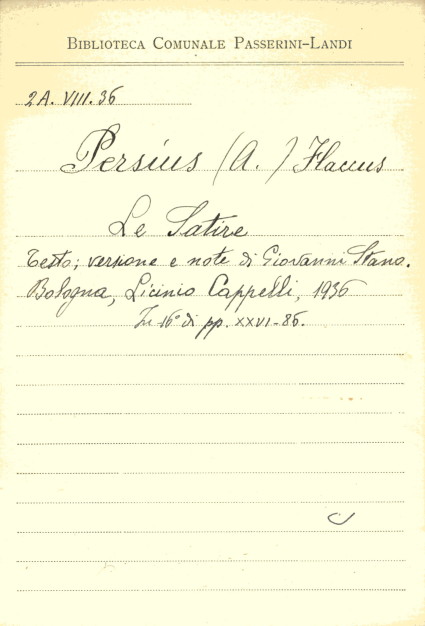 BIBLIOTECA COMUNALE PASSERINI-LANDI
2A. VIII. 36
Persius (A.) Flaccus
Le Satire
Testo; versione e note di Giovanni Stano.
Bologna, Licinio Cappelli, 1936
In 16° di pp. XXVI-86.